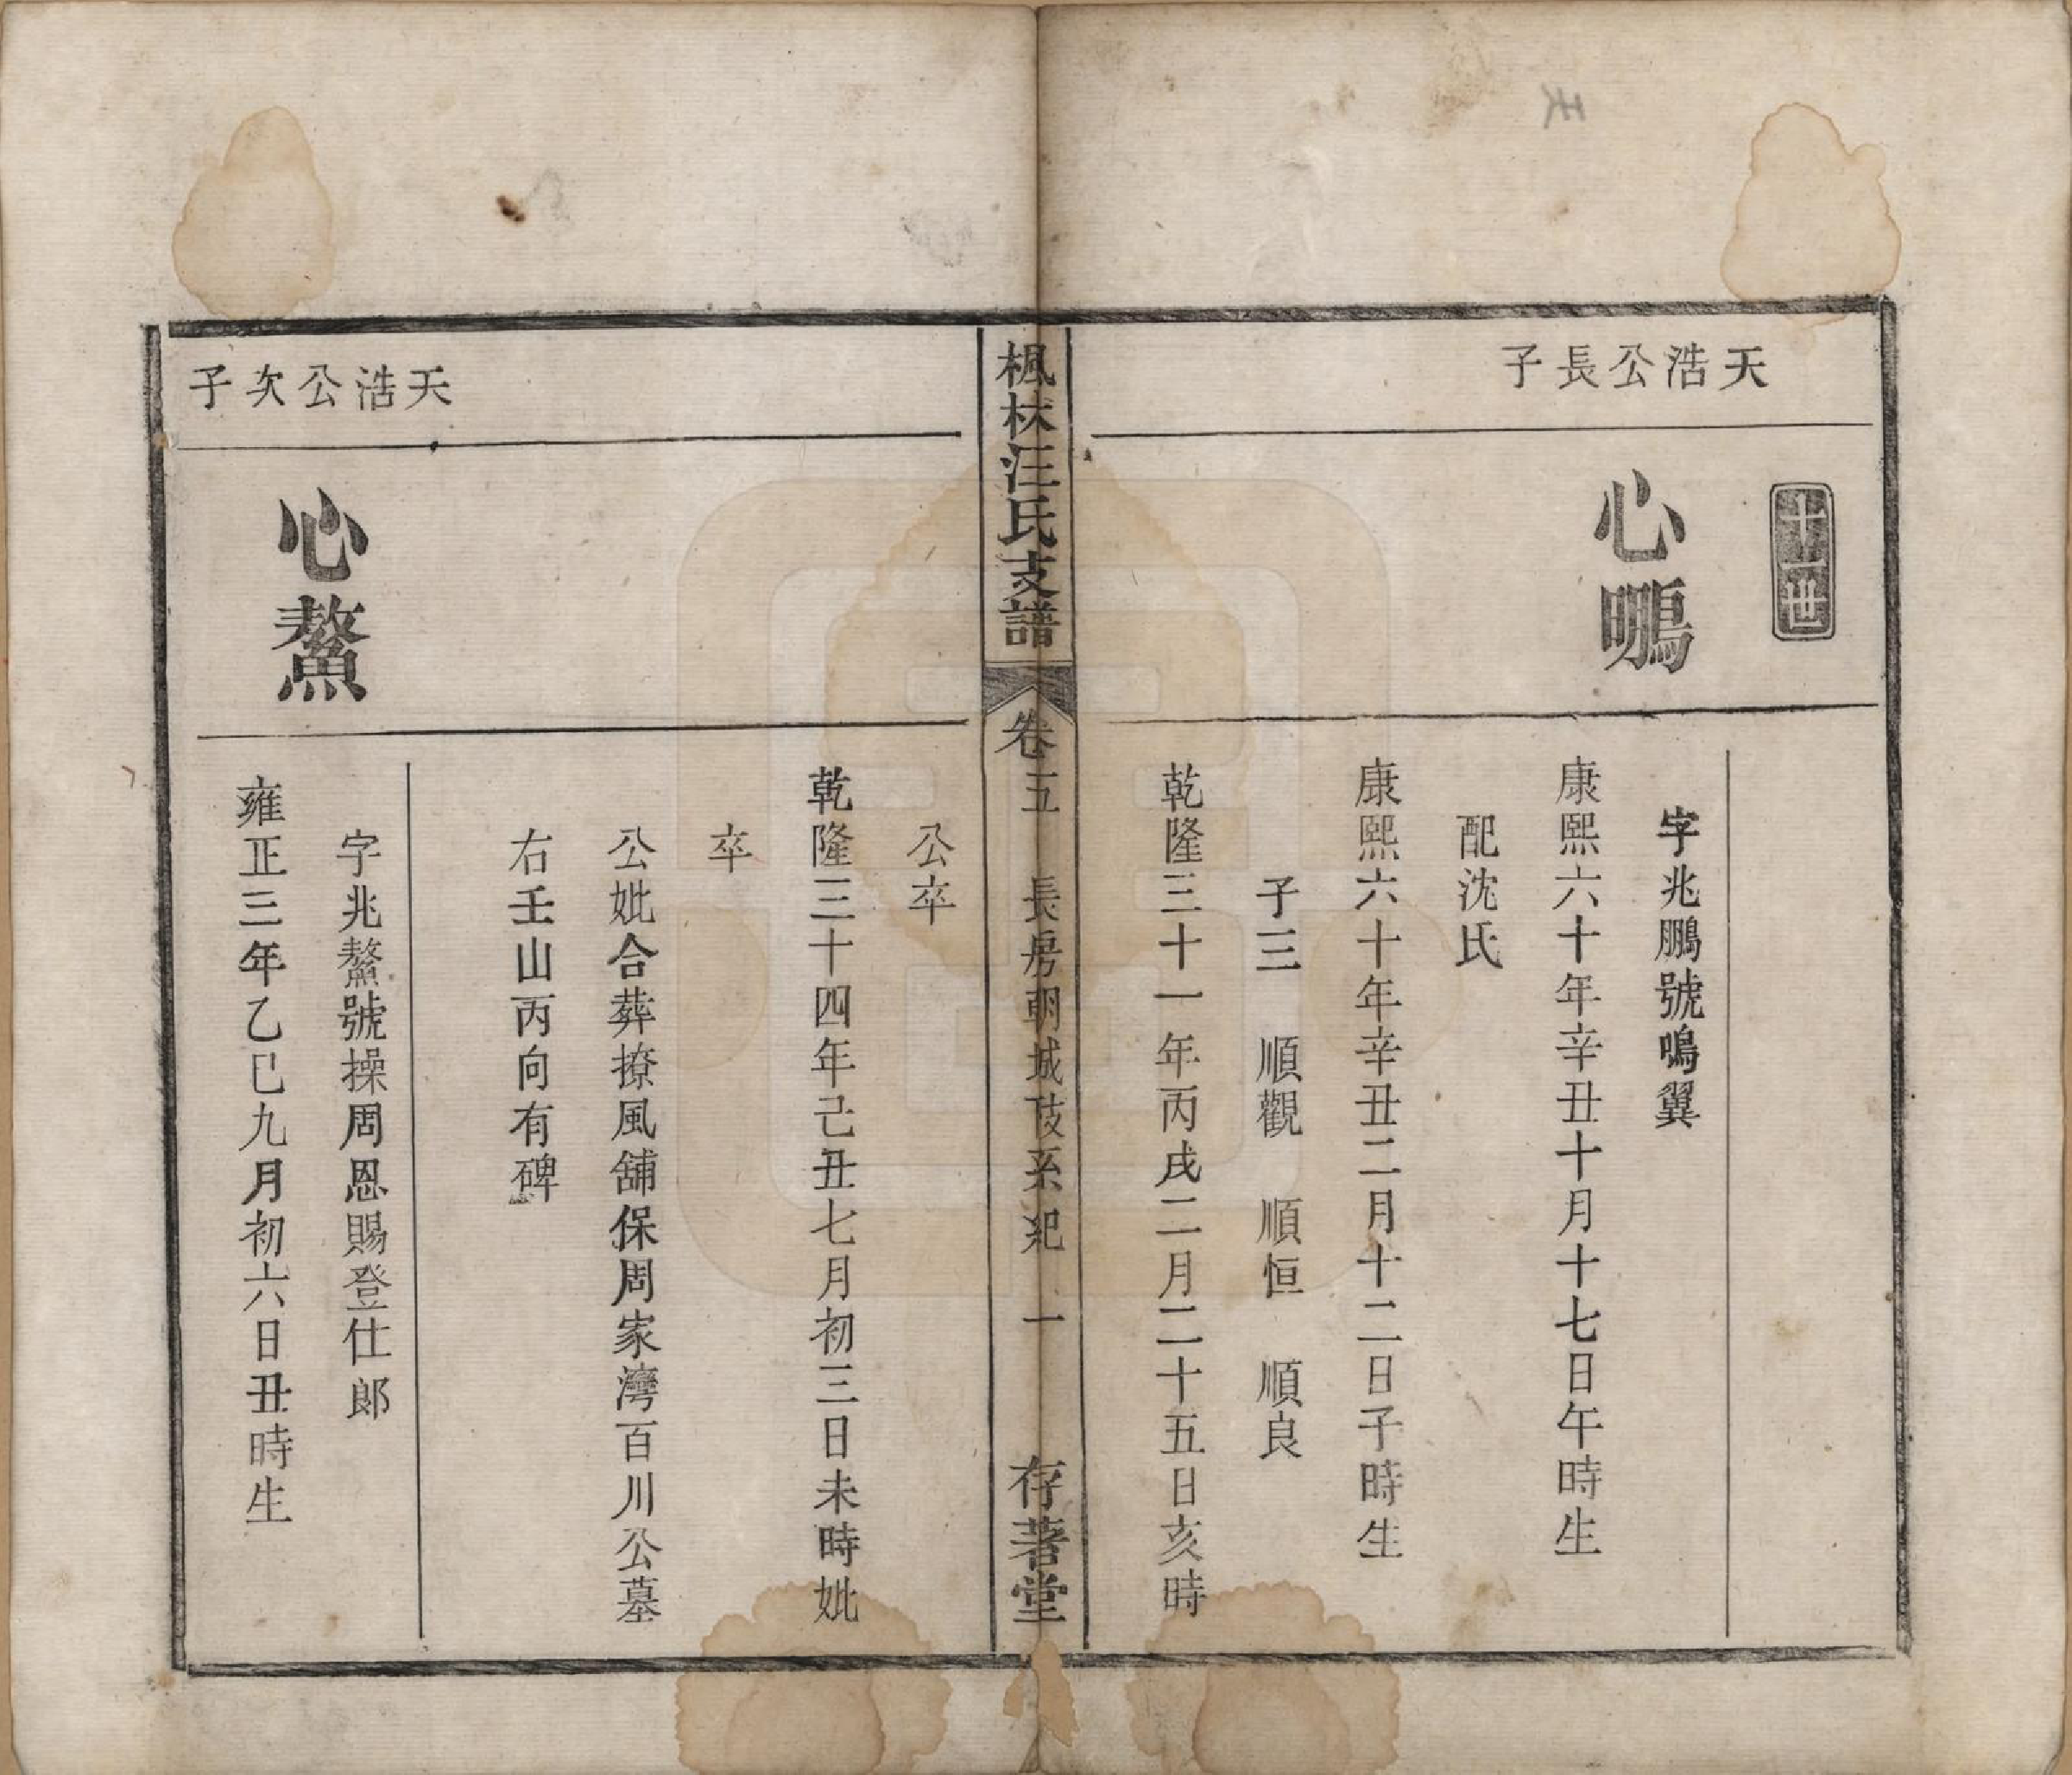 天浩公長子
十一世
心鵰
字兆鵬號鳴翼
康熙六十年辛丑十月十七日午時生
配沈氏
康熙六十年辛丑二月十二日子時生
子三　順觀　順恒　順良
乾隆三十一年丙戌二月二十五日亥時
楓林汪氏支譜
卷五　長房朝城公支系紀　一
存著堂
公卒
乾隆三十四年己丑七月初三日未時妣
卒
公妣合葬撩風舖保周家灣百川公墓
右壬山丙向有碑
天浩公次子
心鰲
字兆鰲號操周恩賜登仕郎
雍正三年乙巳九月初六日丑時生